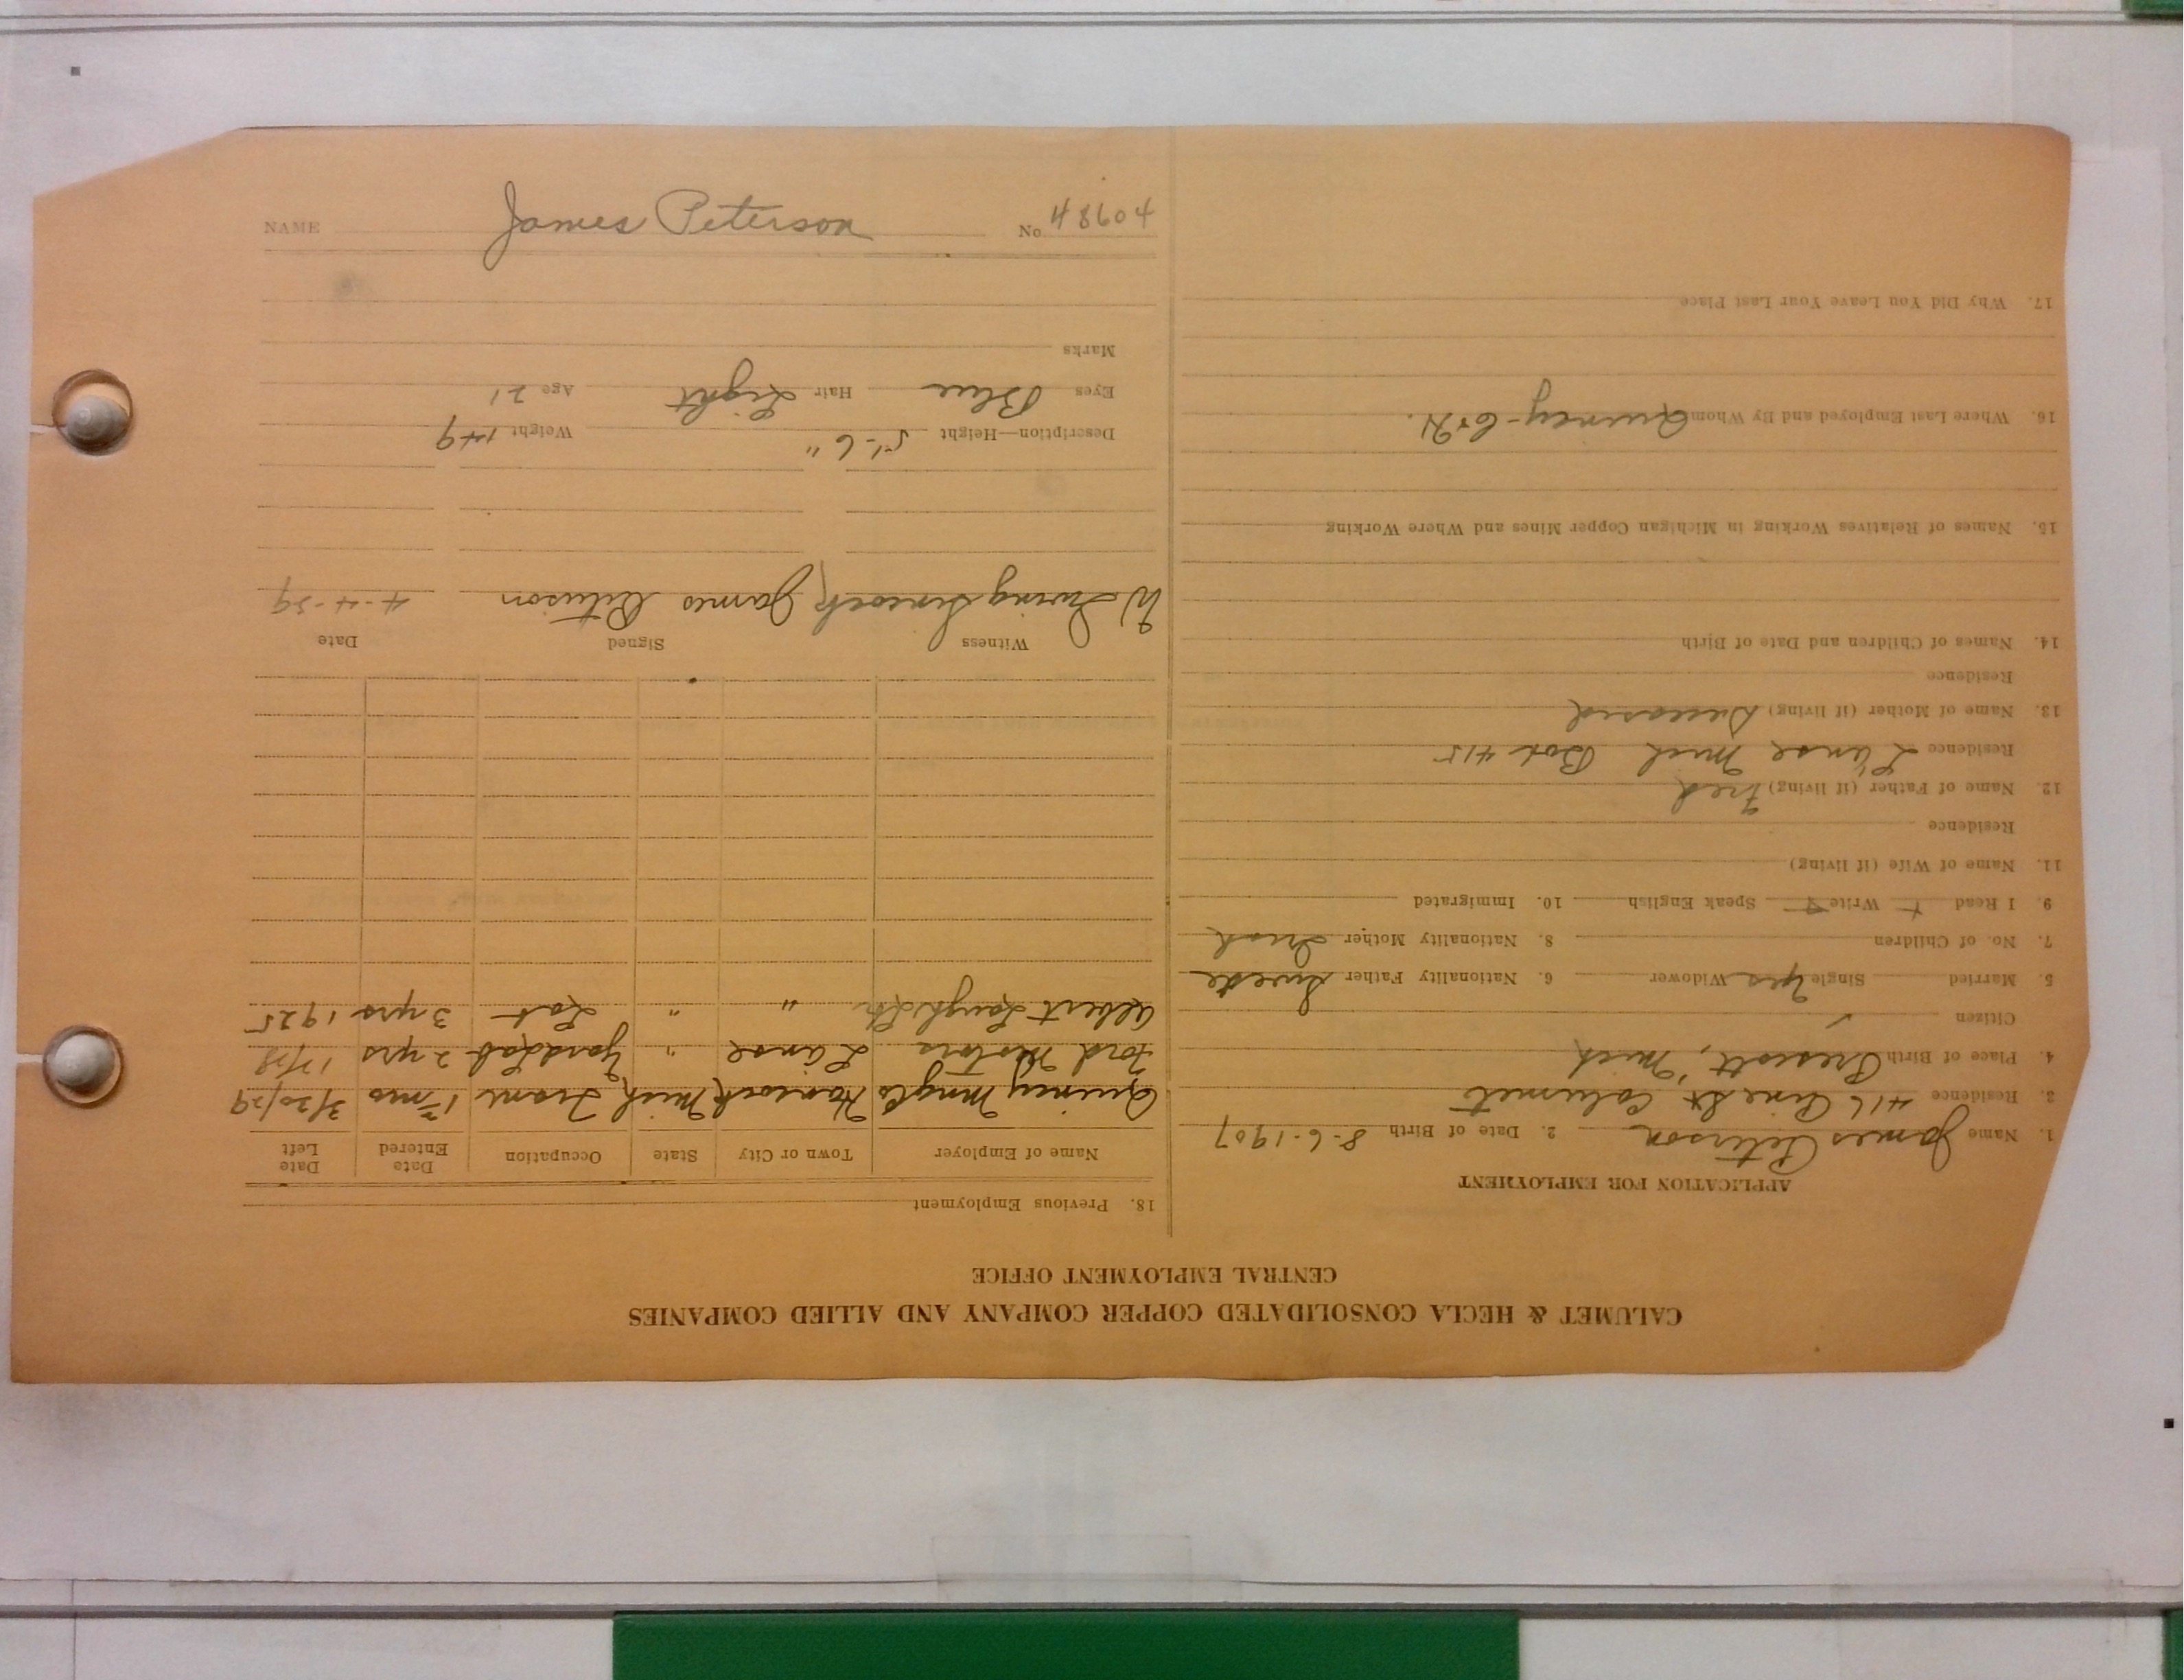 CALUMET & HECLA CONSOLIDATED COPPER COMPANY AND ALLIED COMPANIES
CENTRAL EMPLOYMENT OFFICE
APPLICATION FOR EMPLOYMENT
1. Name James Peterson 2. Date of Birth 8-6-1907
3. Residence 416 Pine St Calumet
4. Place of Birth Prescott, Mich
Citizen
5. Married Single Yes Widower 6. Nationality Father Swede
7. No. of Children 8. Nationality Mother Irish
9. I Read + Write + Speak English 10. Immigrated
11. Name of Wife (if living)
Residence
12. Name of Father (if living) Fred
Residence L'anse Mich Box 415
13. Name of Mother (if living) Deceased
Residence
14. Names of Children and Date of Birth
15. Names of Relatives Working in Michigan Copper Mines and Where Working
16. Where Last Employed and By Whom Quincy - C & H.
17. Why Did You Leave Your Last Place
18. Previous Employment
Name of Employer Town or City State Occupation Date Entered Date Left
Quincy Mng Co Hancock Mich Tram mos 3/20/29
Ford Motors L'anse " Yard Lab 2 yrs
Albert " " 3 yrs 1925
Witness Signed Date
W Irving James Peterson 4-4-29
Description—Height 5'-6" Weight 149
Eyes Blue Hair Light Age 21
Marks
NAME James Peterson No 48604